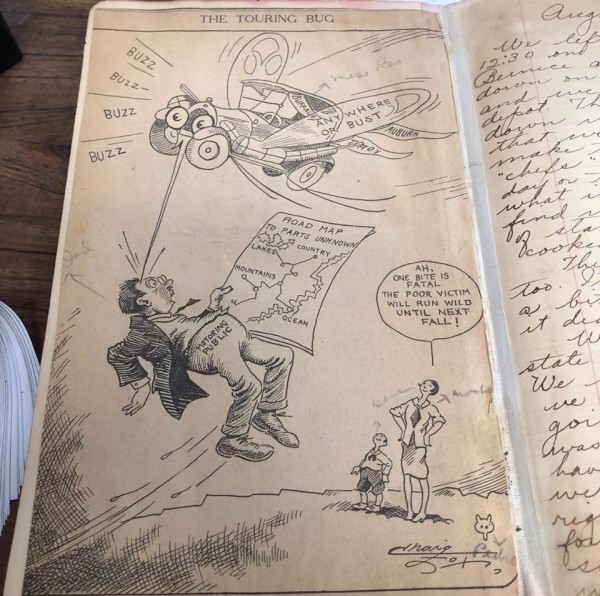 THE TOURING BUG
BUZZ
BUZZ-
BUZZ
BUZZ
Miss Rae
ANYWHERE
OR BUST
AUBURN
ROAD MAP
TO PARTS UNKNOWN
LAKES
COUNTRY
MOUNTAINS
OCEAN
MOTORING
PUBLIC
AH,
ONE BITE IS
FATAL
THE POOR VICTIM
WILL RUN WILD
UNTIL NEXT
FALL!
Craig
Fox
We left
12:30 on
Bernice a
down on
and we
depot. Th
down
that w
make
"chefs"
day or
what i
find
a sta
cooke
Th
too.
a bi
it di
W
state
We
we
goi
was
hav
we
rig
fo
s